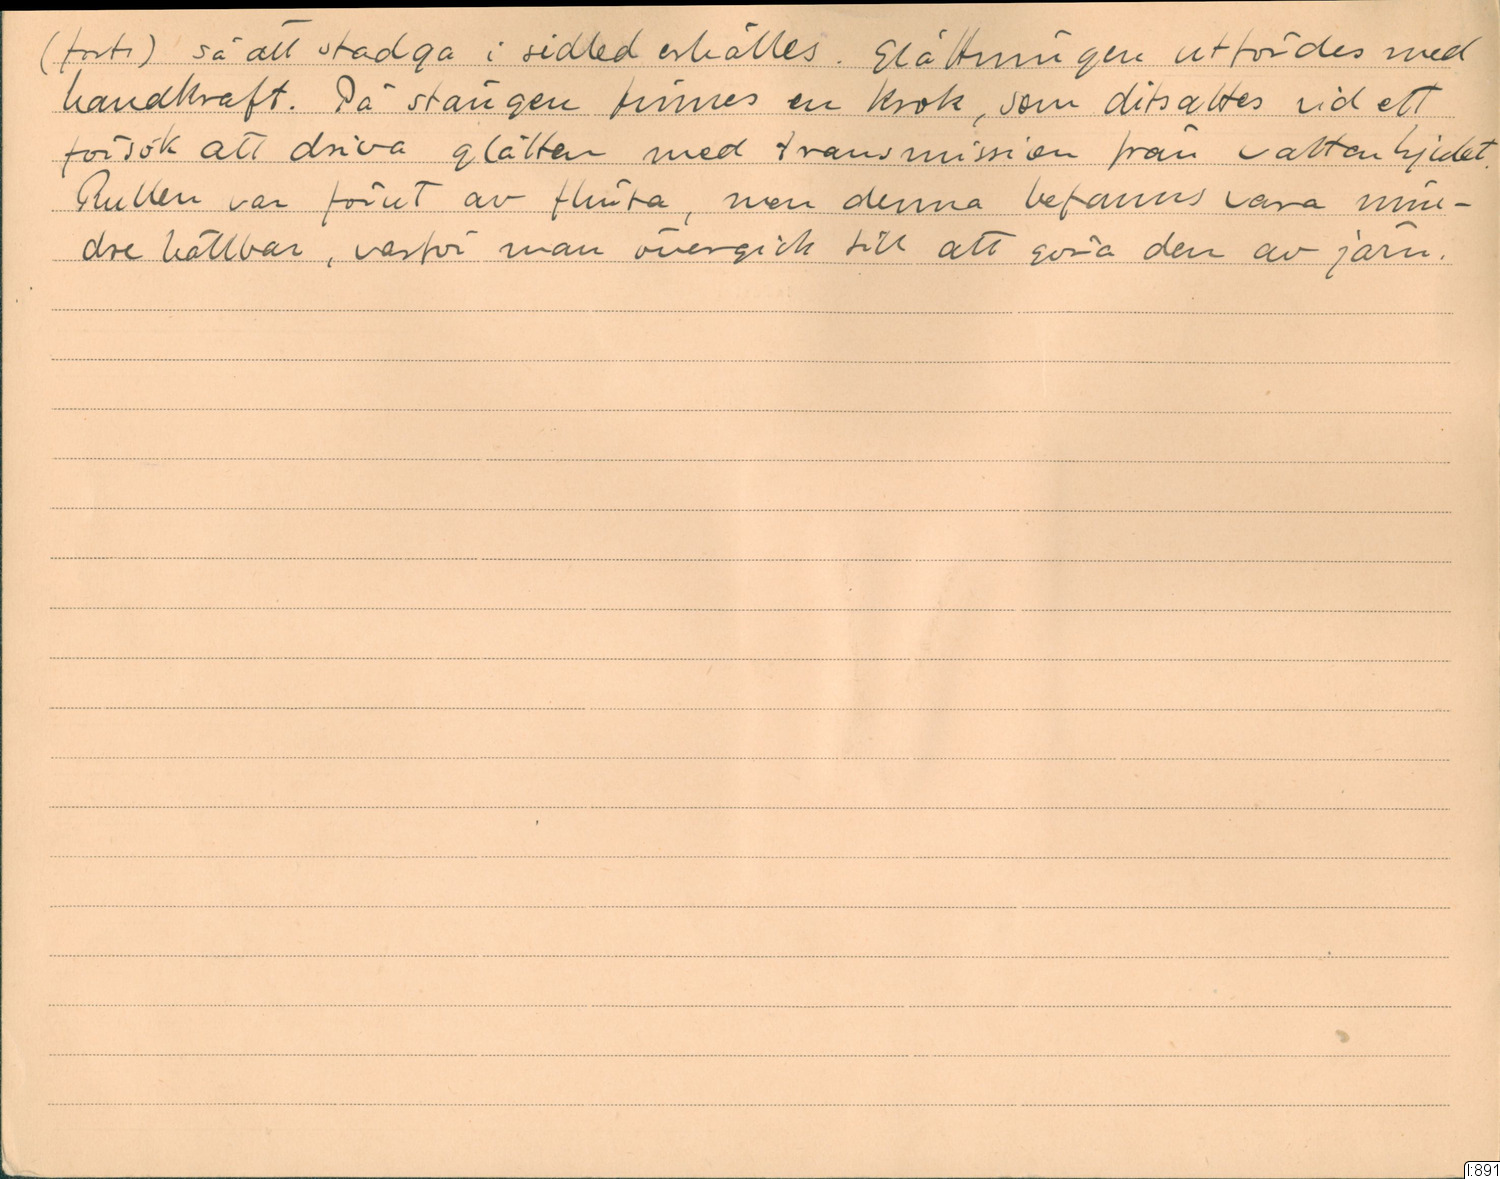 (forts) så att stadga i sidled erhålles. Glättningen utfördes med
handkraft. På stången finnes en krok, som ditsattes vid ett
försök att driva glätten med transmission från vattenhjulet.
Rullen var förut av flinta, men denna befanns vara min-
dre hållbar, varför man övergick till att göra den av järn.
I:891